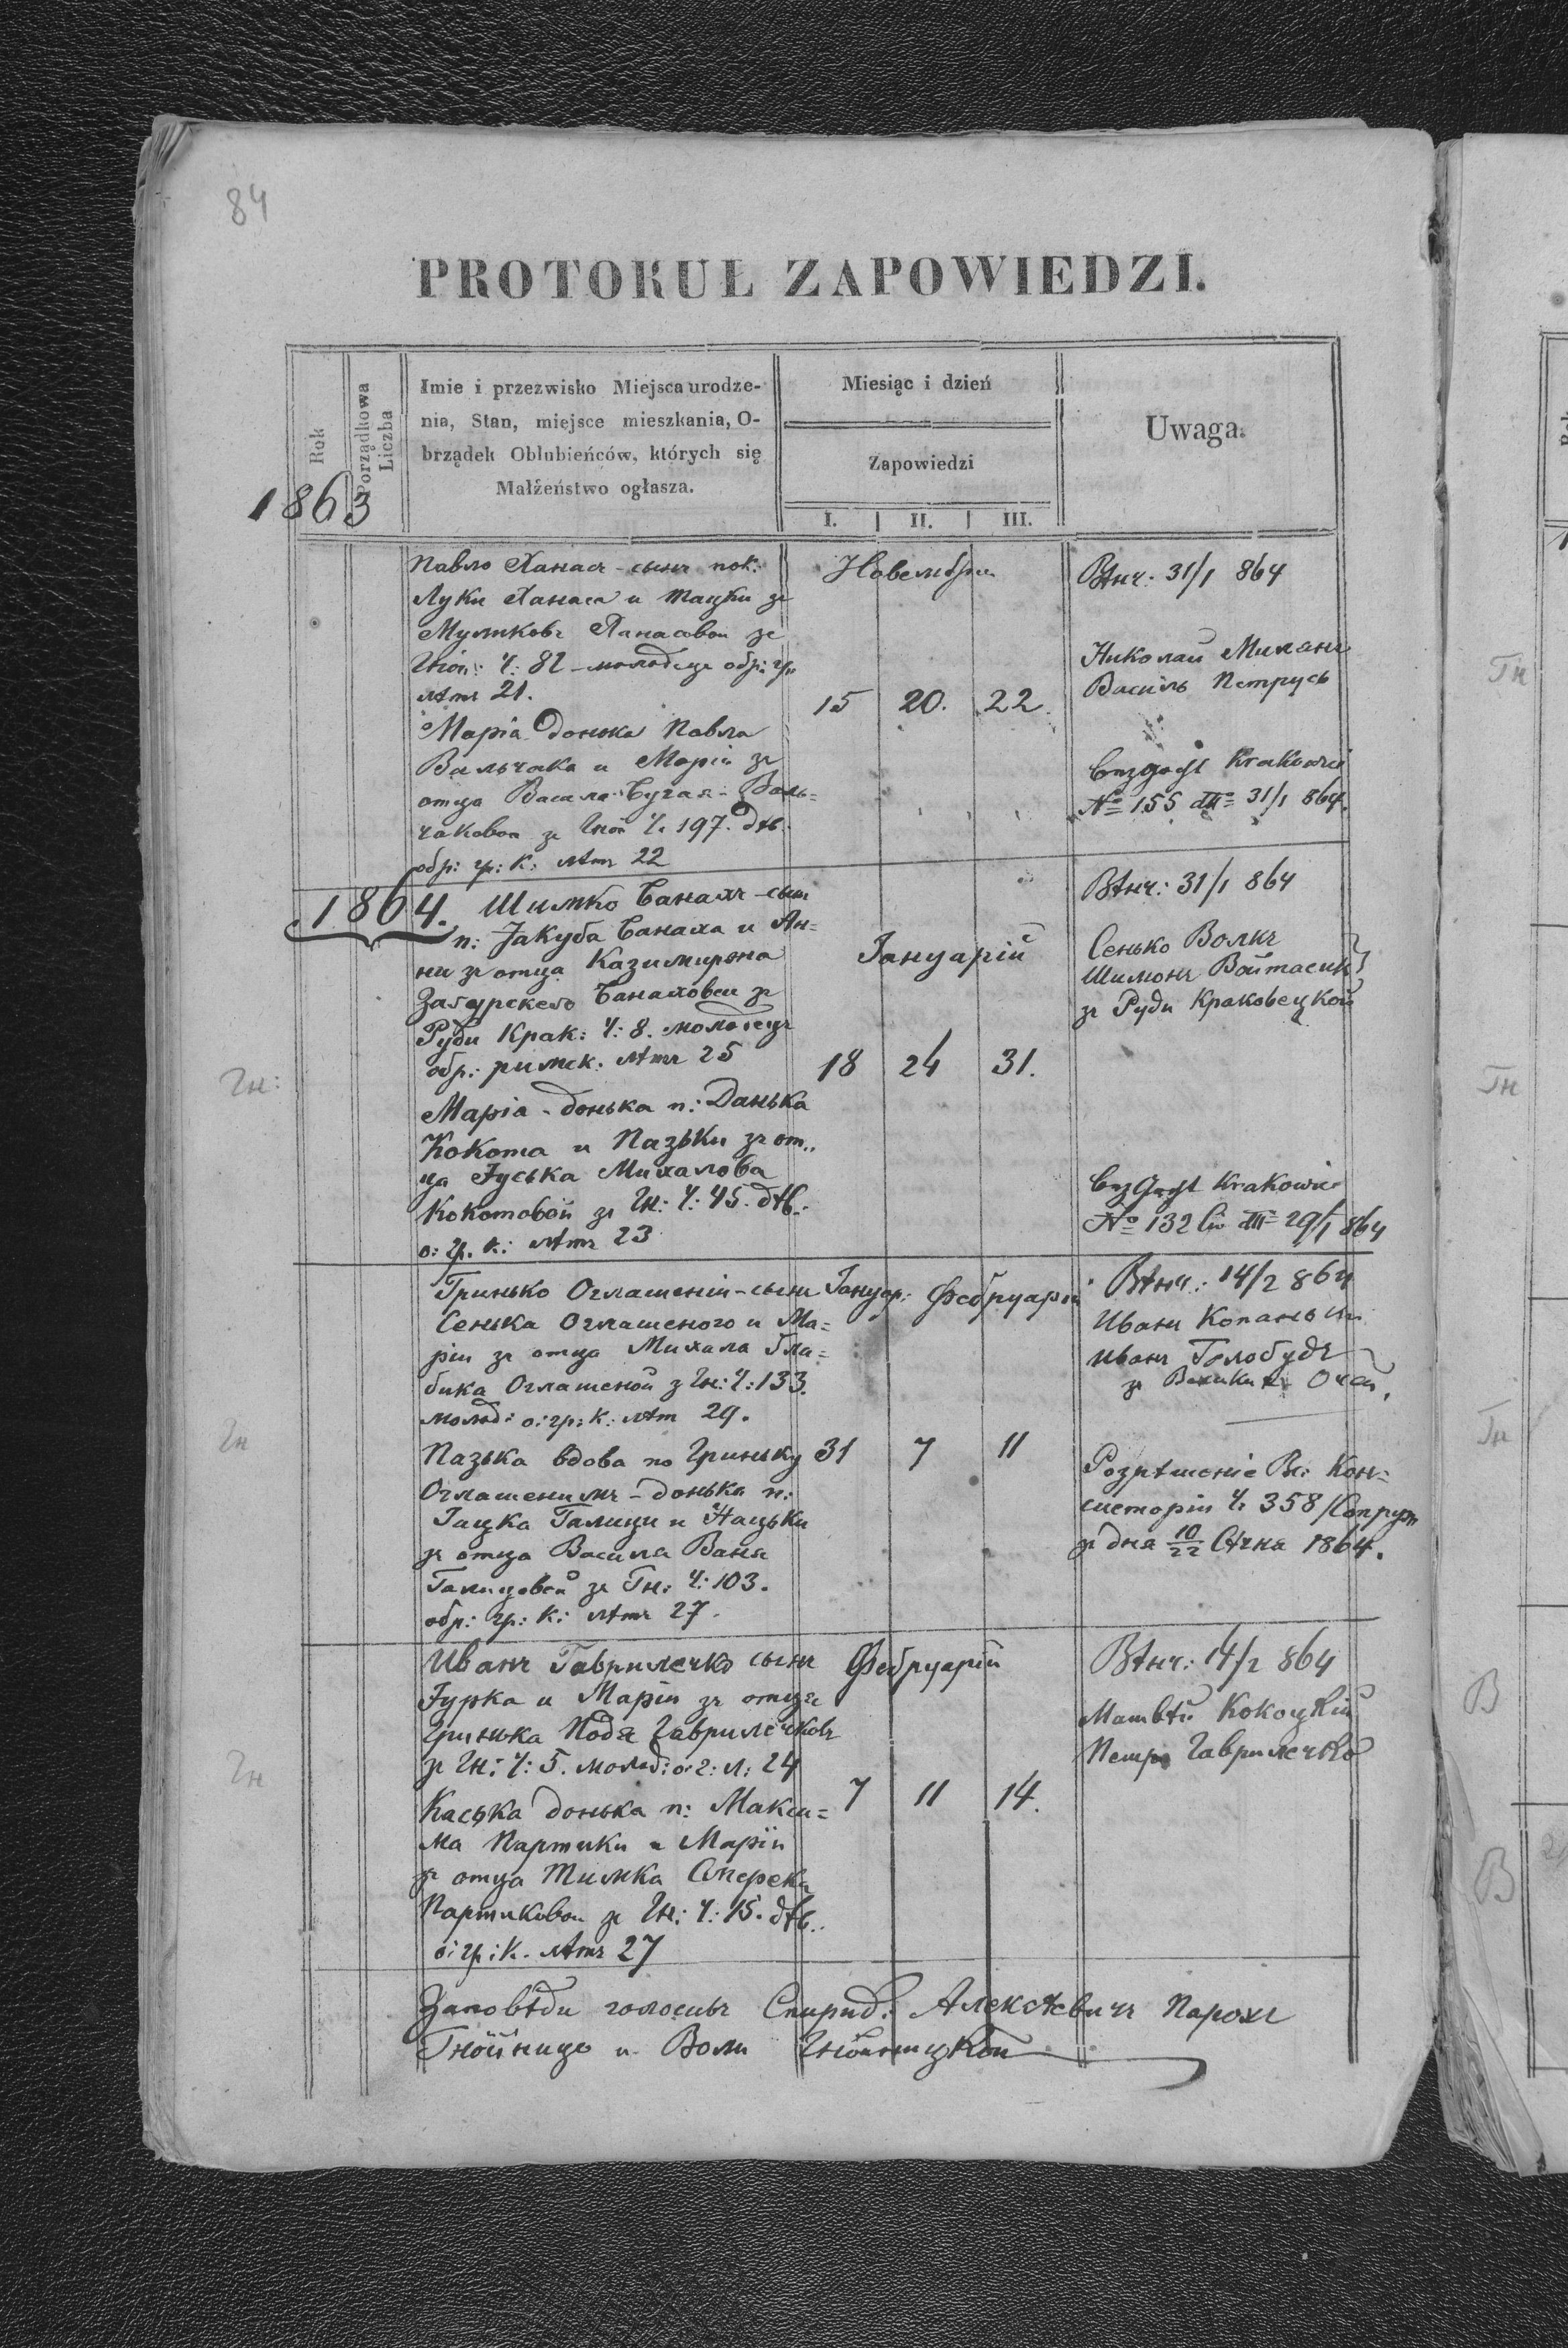 84
PROTOKUŁ ZAPOWIEDZI.
Rok
Porządkowa Liczba
Imie i przezwisko Miejsca urodze-
nia, Stan, miejsce mieszkania, O-
brządek Oblubieńców, których się
Małżeństwo ogłasza.
Miesiąc i dzień
Zapowiedzi
I. II. III.
Uwaga.
1863
Павло Панасъ - сынъ пок:
Луки Панаса и Тацки зъ
Муликовъ Панасовои зъ
Гной: Ч: 82 - молодецъ обр: гр
лѣтъ 21.
Марія донька Павла
Вальчака и Маріи зъ
отца Василя Бугая - Валь=
чаковои зъ Гной Ч. 197. дѣв.
обр: гр: к: лѣтъ 22
Новембрій
15 20. 22.
Вѣнч: 31/1 864
Николай Миланъ
Василь Петрусь
Krakowie
No 155 31/1 864.
1864.
Шимко Банахъ - сынъ
п: Якуба Банаха и Ан=
ни зъ отца Казимира
Банаховеи зъ
Руди Крак: Ч: 8. молодецъ
обр: римск: лѣтъ 25
Марія - донька п: Данька
Кокота и Пазьки зъ от..
ца Гуська Михалова
Кокотовои зъ Гн: Ч: 45. дѣв.:
о: гр. к: лѣтъ 23
Януарій
18 24 31.
Вѣнч: 31/1 864
Сенько Волкъ
Шимонъ Войтасик
зъ Руди Краковецкои
Krakowie
No 132 29/1 864
Гн:
Гринько Оглашеній - сынъ
Сенька Оглашеного и Ма=
ріи зъ отца Михала Бла=
бика Оглашеной з Гн: Ч: 133.
молод: о: гр: к: лѣт 29.
Пазька вдова по Гриньку
Оглашенимъ - донька п:
Яцка Галици и Нацьки
зъ отца Василя Ваня
Галицовеи зъ Гн: Ч: 103.
обр: гр: к: лѣтъ 27.
Януар: Фебруарій
31 7 11
Вѣнч: 14/2 864
Иванъ
Иванъ Голобудъ
зъ Великихъ Очей,
Розрѣшеніе Вс: Кон=
систоріи Ч. 358
зъ дня 10/22 Сѣчня 1864.
Гн
Иванъ Гаврилечко сынъ
Юрка и Маріи зъ отца
Гринька Нодя Гаврилечковъ
зъ Гн: Ч: 5. молод: о: г: л: 24
Каська донька п: Макси=
ма Партики и Маріи
зъ отца Тимка Смерека
Партиковои зъ Гн: Ч: 15. дѣв..
о: гр: к. лѣтъ 27
Фебруарій
7 11 14.
Вѣнч: 14/2 864
Матвѣй Кокоцкій
Петро Гаврилечко
Гн
Заповѣди голосивъ Спирид: Алексѣевичъ Парохъ
Гнойници и Воли Гнойницкои
Гн
Гн
Гн
В
В